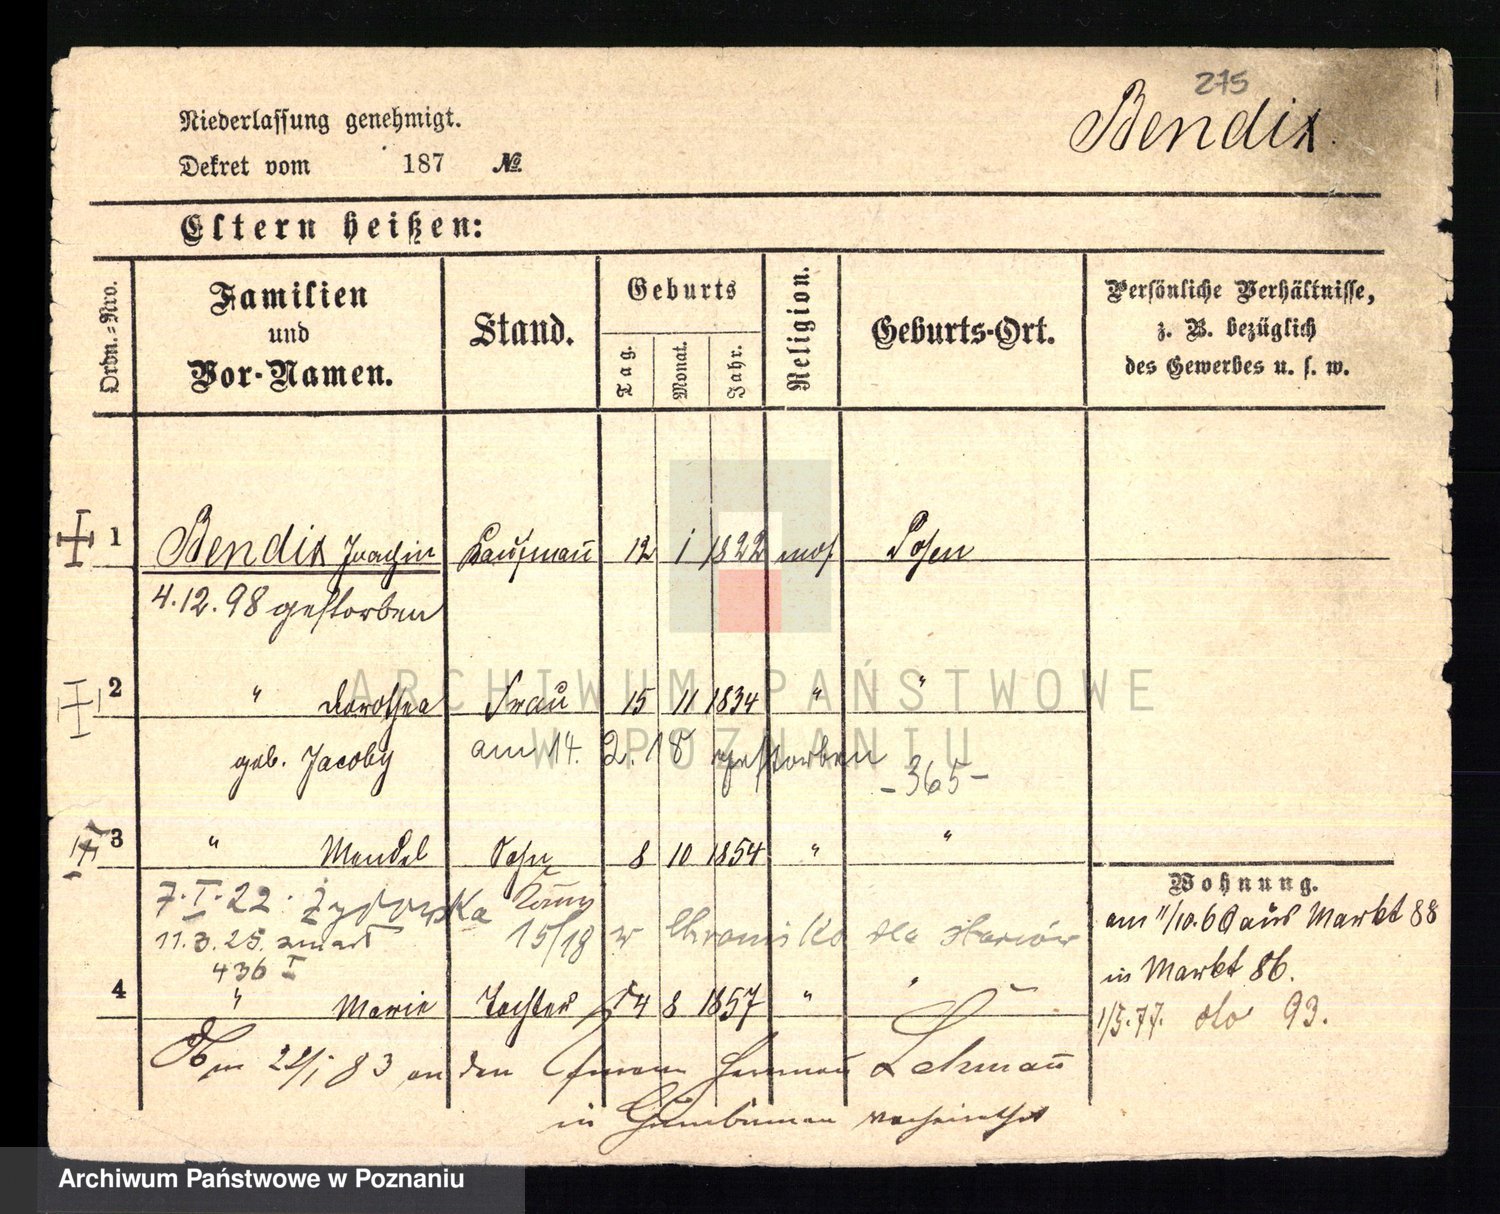 275
Bendix.
Niederlassung genehmigt.
Dekret vom 187 №
Eltern heißen:
Ordn.=Nro.
Familien
und
Vor-Namen.
Stand.
Geburts
Tag.
Monat.
Jahr.
Religion.
Geburts-Ort.
Persönliche Verhältnisse,
z. B. bezüglich
des Gewerbes u. s. w.
1 Bendix Joachim Kaufmann 12 1 1822 mos Posen
4.12.98 gestorben
2 " Dorothea Frau 15 11 1834 " "
geb. Jacoby am 14. 2. 18 gestorben
-365-
3 " Mendel Sohn 8 10 1854 " "
Wohnung.
7.I.22. Żydowska
15/18 dla starców
11.3.25. zmarł
436 I
am 11/10.66 aus Markt 88
in Markt 86.
1/5.77. dto 93.
4 " Marie Tochter 14 8 1857 " "
Am 22/1 83 an den Herman Lehmann
in Gumbinnen verheirathet
ARCHIWUM PAŃSTWOWE
W POZNANIU
Archiwum Państwowe w Poznaniu